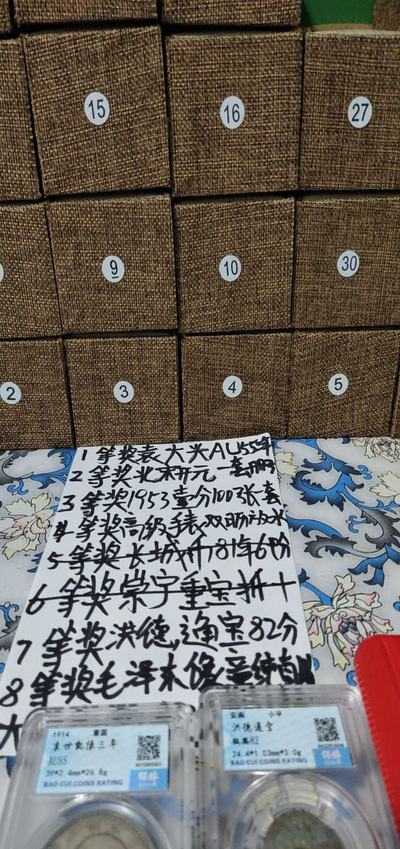 15
16
27
9
10
30
2
3
4
5
1等奖袁大头AU55年
2等奖北宋开元一套
3等奖1953壹分100张套
等奖高级手表,双日历防水
5等奖长城币81年6
6等奖崇宁重宝折十
7等奖洪德,通宝82分
8等奖毛泽东像章纯
大
1914 壹圆
袁世凯像三年
AU55
39*2.4mm*26.8g
BAO CUI COINS RATING
安南 小平
洪德通宝
极美82
24.4*1.03mm*3.0g
BAO CUI COINS RATING